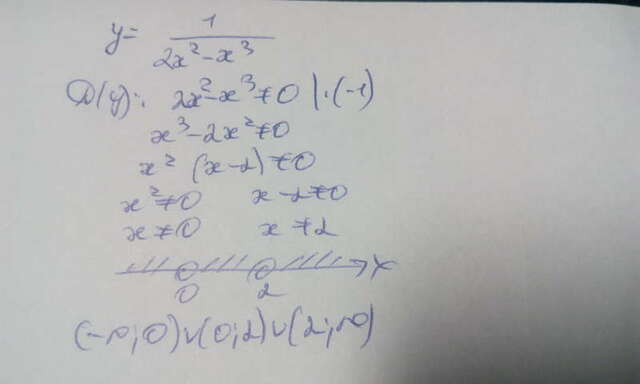 y = 1/(2x² - x³)
D(y): 2x² - x³ ≠ 0 | · (-1)
x³ - 2x² ≠ 0
x² (x - 2) ≠ 0
x² ≠ 0 x - 2 ≠ 0
x ≠ 0 x ≠ 2
x
0 2
(-∞; 0) ∪ (0; 2) ∪ (2; ∞)